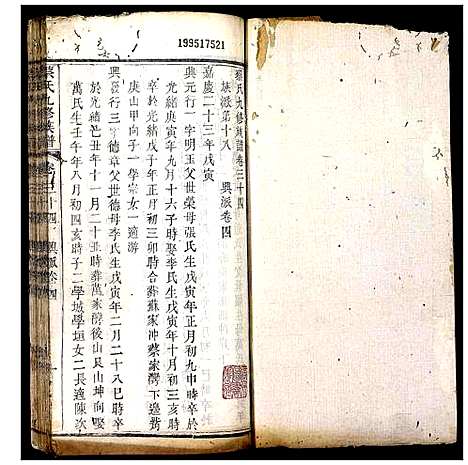 199517521
蔡氏九修族譜卷三十四
族派第十八　興派卷四
嘉慶二十三年戊寅
興元行一字明玉父世榮母張氏生戊寅年正月初九申時卒於
光緒庚寅年九月十六子時娶李氏生戊寅年十月初三亥時
卒於光緒戊子年正月初三卯時合葬蘇家冲蔡家灣下邊菁
庚山甲向子一學宗女一適游
興 行三字德章父世德母李氏生戊寅年二月二十八巳時卒
於光緒己丑年十一月二十丑時葬萬家灣後山艮山坤向娶
萬氏生壬午年八月初四亥時子二學城學垣女二長適陳次
蔡氏九修族譜　卷三十四　興派卷四